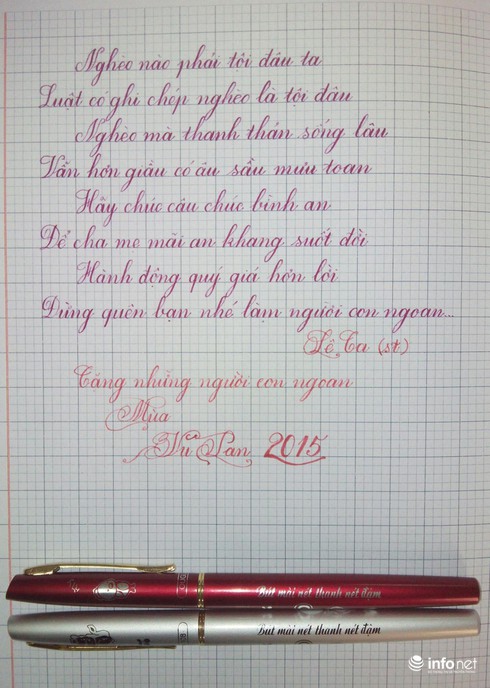 Nghèo nào phải tội đâu ta
Luật có ghi chép nghèo là tội đâu
Nghèo mà thanh thản sống lâu
Vẫn hơn giàu có âu sầu mưu toan
Hãy chúc câu chúc bình an
Để cha mẹ mãi an khang suốt đời
Hành động quý giá hơn lời
Đừng quên bạn nhé làm người con ngoan...
Lê Ca (st)
Tặng những người con ngoan
Mùa
Vu Lan 2015
Bút mài nét thanh nét đậm
Bút mài nét thanh nét đậm
infonet